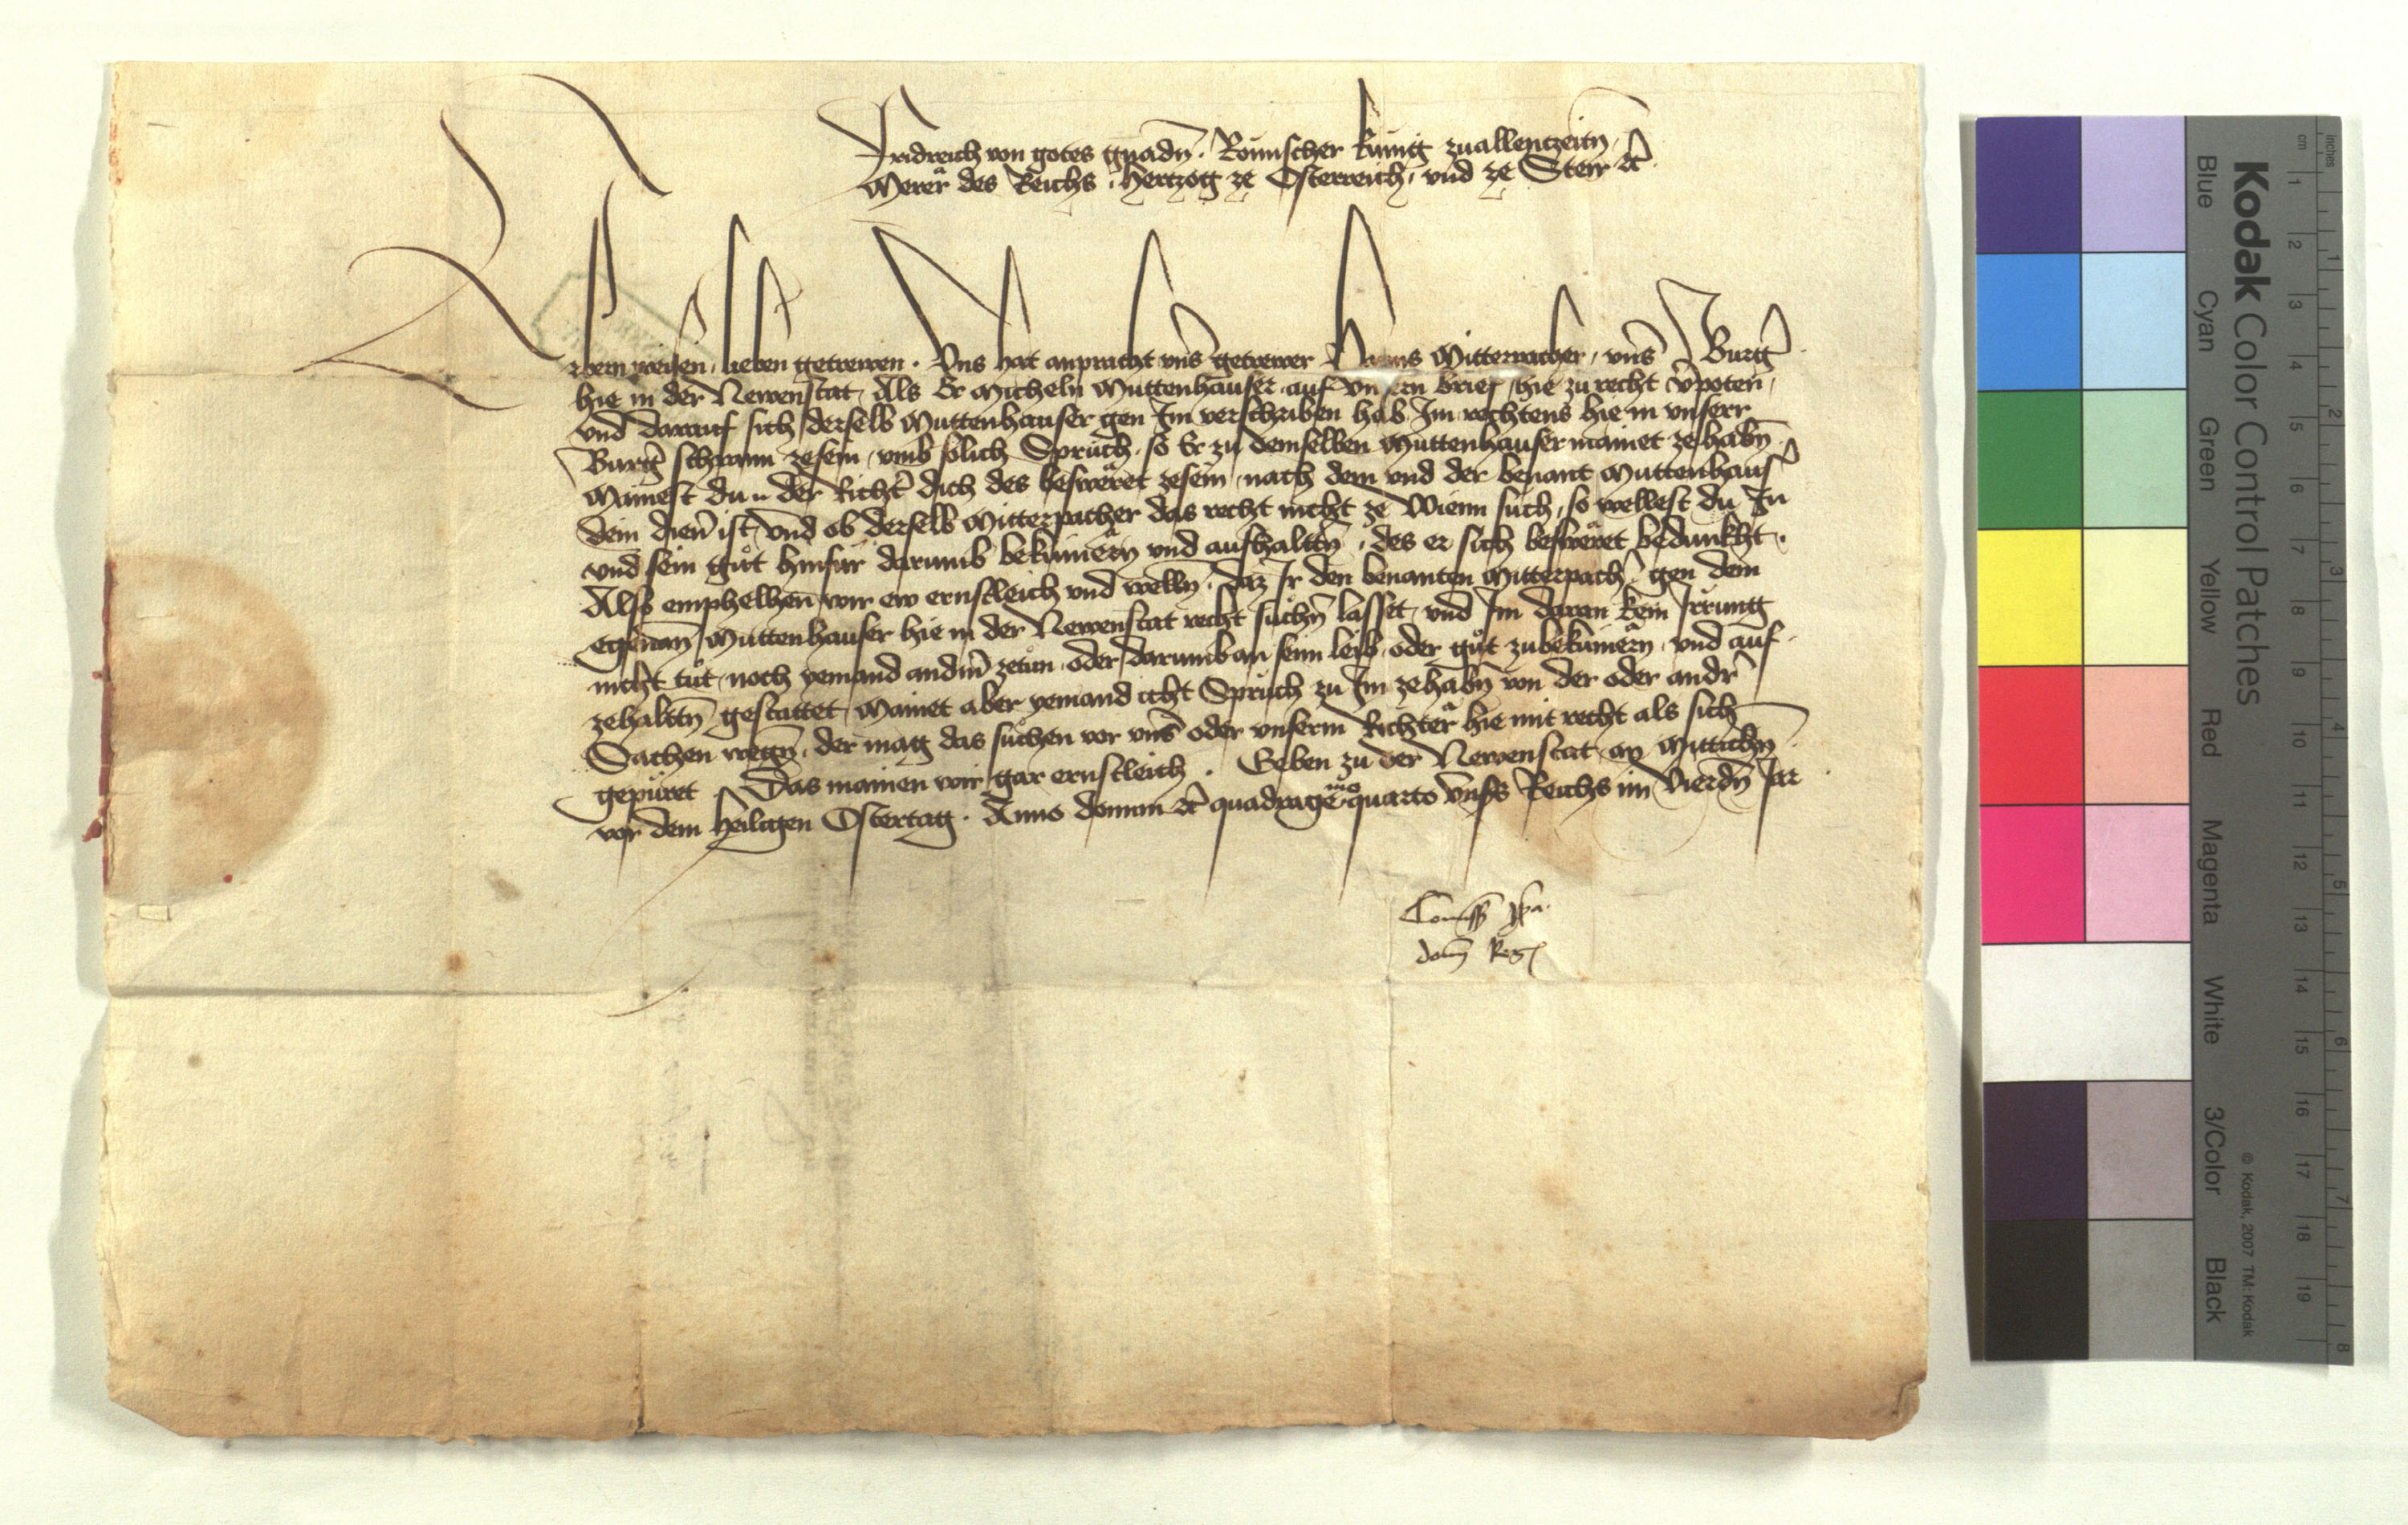 Fridreich von gotes gnadn̄. Römischer kunig zuallenczeitn̄
Merer des Reichs, hertzog ze Österreich, vnd ze Steir ꝛc̄
Erbern weisen, lieben getrewen. Vns hat anpracht vnser̄ getrewer Hanns Mitterpacher, vnser̄ Burḡ
hie in der Newenstat, Als Er Micheln Muttenhauser auf vnsern brief, hie zu recht v̄poten,
vnd darauf sich derselb Muttenhauser gen Im verschriben hab, Im rechtens hie in vnserr
Burḡ schrann zesein, vmb solich Sprüch, so Er zu demselben Muttenhauser mainet zehabn̄.
Mainest du der Richt̄ dich des beswëret zesein, nach dem vnd der benant Muttenhaus̄
dein dien̄ ist, vnd ob derselb Mitterpacher das recht nicht ze Wienn such, so wellest du In
vnd sein gůt hinfur darumb bekumern vnd aufhaltn̄, des er sich beswëret bedunkht.
Also emphelhen wir ew ernstleich vnd welln̄, daz Ir den benanten Mitterpach̄ gen dem
egenan̄ Muttenhauser hie in der Newenstat recht suchn̄ lasset, vnd Im daran kein Irrung
nicht tůt, noch yemand andm̄ zetun, oder darumb an seim leib, oder gůt zubekumern, vnd auf
zehaltn̄ gestattet, Mainet aber yemand icht Sprüch zu Im zehabn̄ von der oder andr̄
Sachen wegn̄, der mag das süchen vor vns̄ oder vnserm Richter hie mit recht als sich
gepüret. Das mainen wir gar ernstleich. Geben zu der Newenstat, an Mittichn̄
vor dem heiligen Ostertag. Anno domini ꝛc̄ quadrage͞moquarto vnsers̄ Reichs im Vierdn̄ Jar
Com̄iss̄ p̄pa.
dom̄ Reḡ
Kodak Color Control Patches
Blue Cyan Green Yellow Red Magenta White 3/Color Black
© Kodak, 2007 TM: Kodak
cm 1 2 3 4 5 6 7 8 9 10 11 12 13 14 15 16 17 18 19
inches 1 2 3 4 5 6 7 8